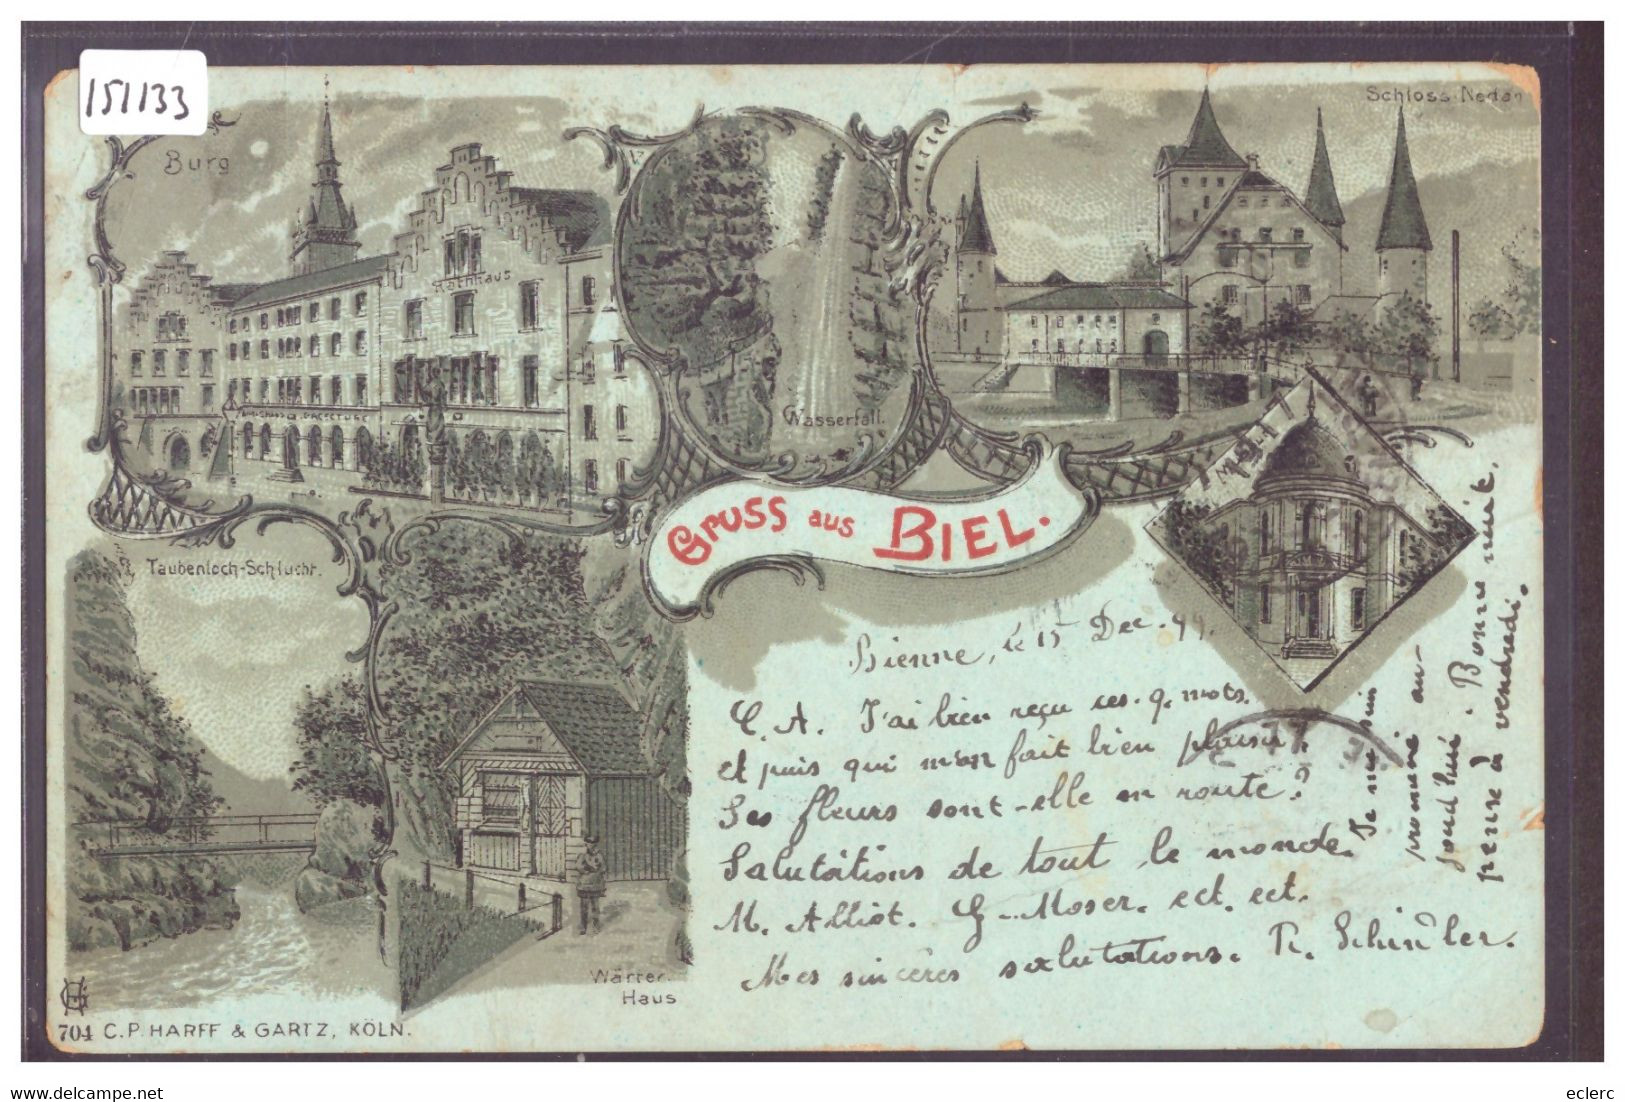 151133
Burg
Rathhaus
Wasserfall.
Schloss Nedan
Taubenloch-Schlucht.
Gruss aus BIEL.
Wärter.
Haus
Bienne, le 15 Dec. 99.
C. A. J'ai bien reçu ces q. mots.
et puis qui m'on fait bien plaisir.
Les fleurs sont-elle en route?
Salutations de tout le monde.
M. Alliot. G. Moser. ect. ect.
Mes sincères salutations. R. Schindler.
Je me suis
promené au-
jourd'hui. Bonne nuit.
pense à vendredi.
704 C.P. HARFF & GARTZ, KÖLN.
eclerc
www.delcampe.net